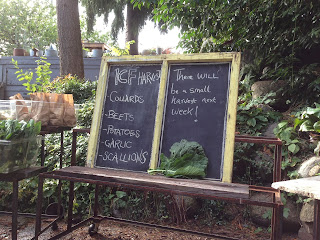 KCF HARVEST
-COLLARDS
-BEETS
-POTATOES
-GARLIC
-SCALLIONS
There will
be a small
Harvest next
week!